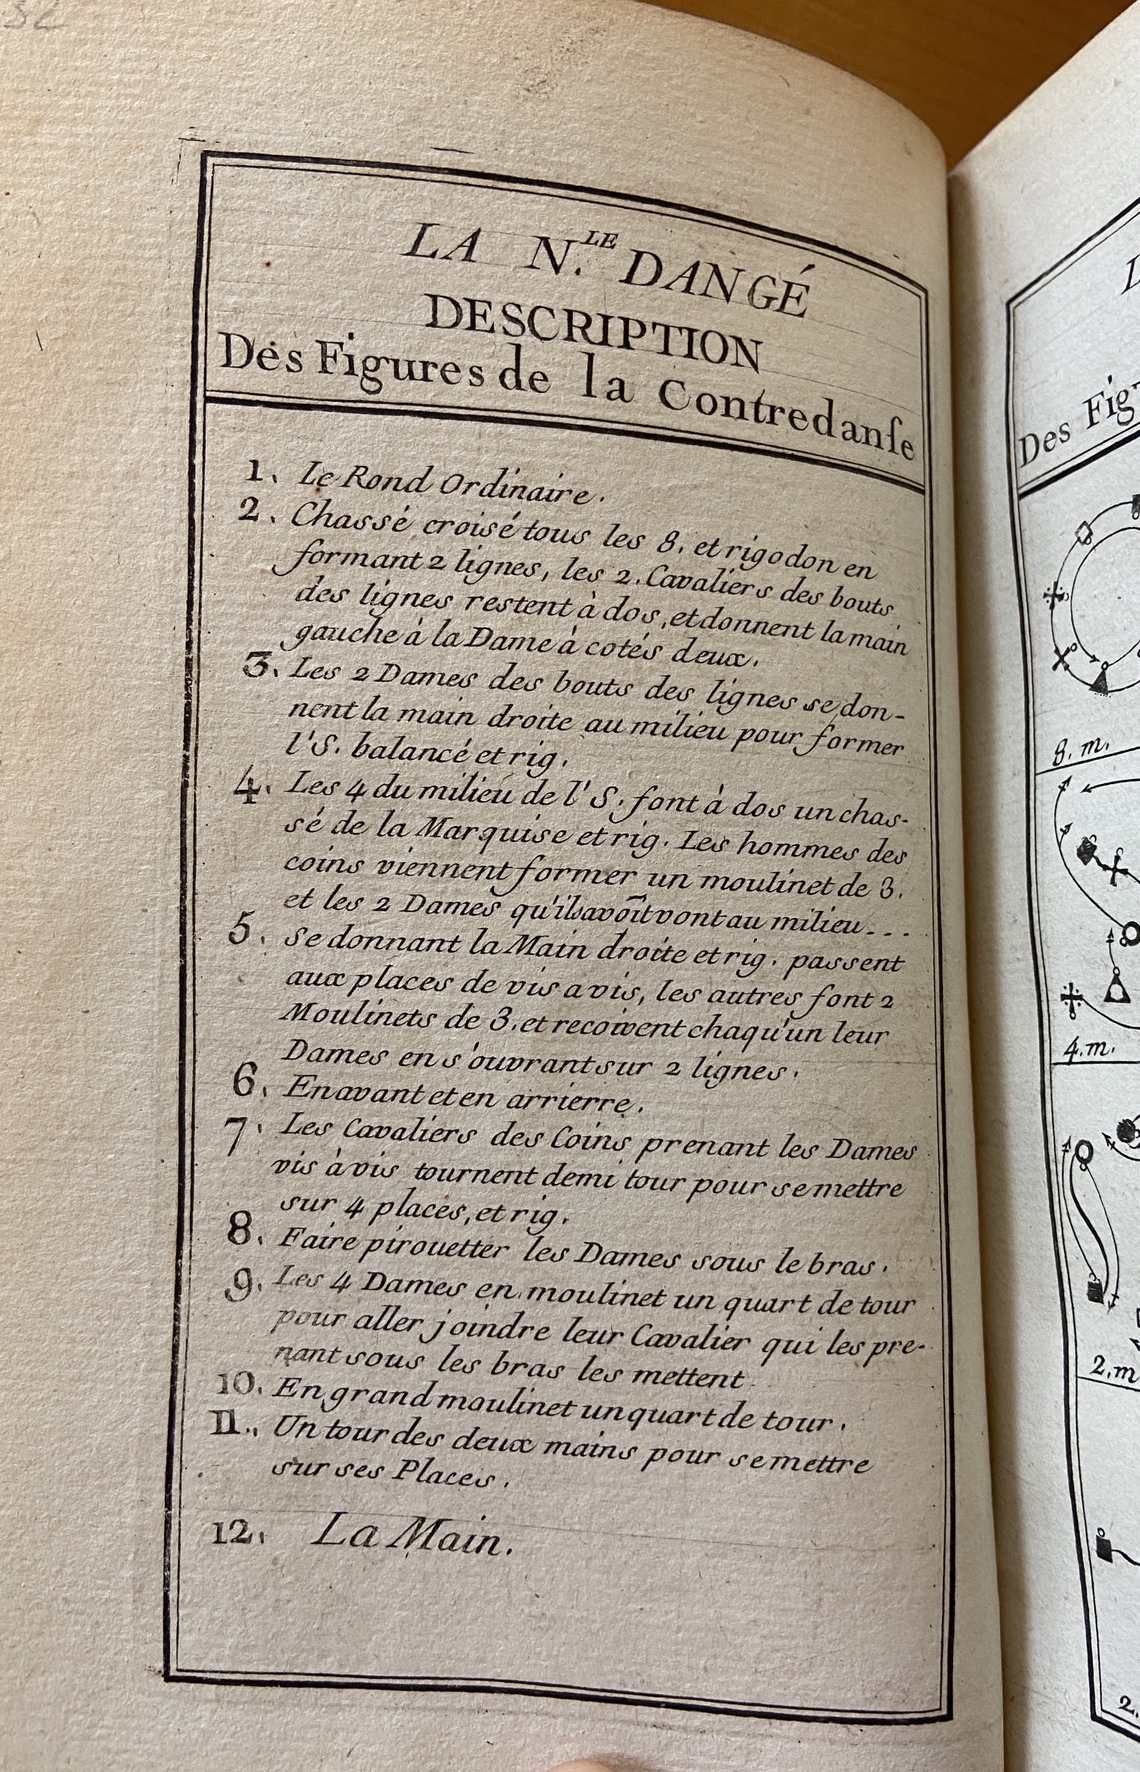 32
LA N.LE DANGÉ
DESCRIPTION
Dés Figures de la Contredanſe
1. Le Rond Ordinaire.
2. Chassé croisé tous les 8. et rigodon en
formant 2 lignes, les 2. Cavaliers des bouts
des lignes restent à dos, et donnent la main
gauche à la Dame à cotés deux.
3. Les 2 Dames des bouts des lignes se don-
nent la main droite au milieu pour former
l'S. balancé et rig.
4. Les 4 du milieu de l'S. font à dos un chas-
sé de la Marquise et rig. Les hommes des
coins viennent former un moulinet de 3.
et les 2 Dames qu'ils avõit vont au milieu...
5. Se donnant la Main droite et rig. passent
aux places de vis avis, les autres font 2
Moulinets de 3. et recoivent chaqu'un leur
Dames en s'ouvrant sur 2 lignes.
6. En avant et en arrierre.
7. Les Cavaliers des Coins prenant les Dames
vis à vis tournent demi tour pour se mettre
sur 4 places, et rig.
8. Faire pirouetter les Dames sous le bras.
9. Les 4 Dames en moulinet un quart de tour
pour aller joindre leur Cavalier qui les pre-
nant sous les bras les mettent
10. En grand moulinet un quart de tour.
11. Un tour des deux mains pour se mettre
sur ses Places.
12. La Main.
Des Fig
8. m.
4. m.
2. m
2.